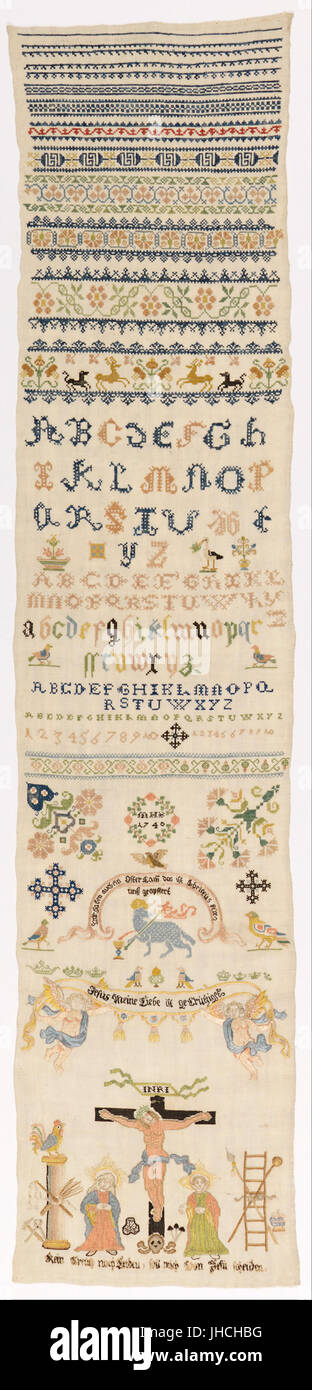 ABCDEFGh
IKLMNOP
QRSTUVW
yZ
ABCDEFGHIKL
MNOPQRSTUVWXY
Z
abcdefghiklmnopqr
yz
ABCDEFGHIKLMNOPQ
RSTUWXYZ
ABCDEFGHIKLMNOPQRSTUWXYZ
12345678910 12345678910
MHS
1749
Oster Lam das ist Christus
und geopfert
Jesus Meine Liebe ist geCrütziget
INRI
Kein Creutz noch Leiden, soll mich Von Jesu scheiden
alamy
Image ID: JHCHBG
www.alamy.com